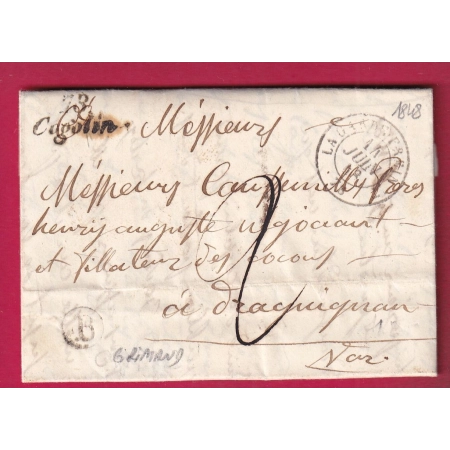 78
Cogolin
1848
JUIN
Messieurs
Messieurs frères
henry auguste négociant
et filateur des cocons
2
à Draguignan
Var.
B
GRIMAUD